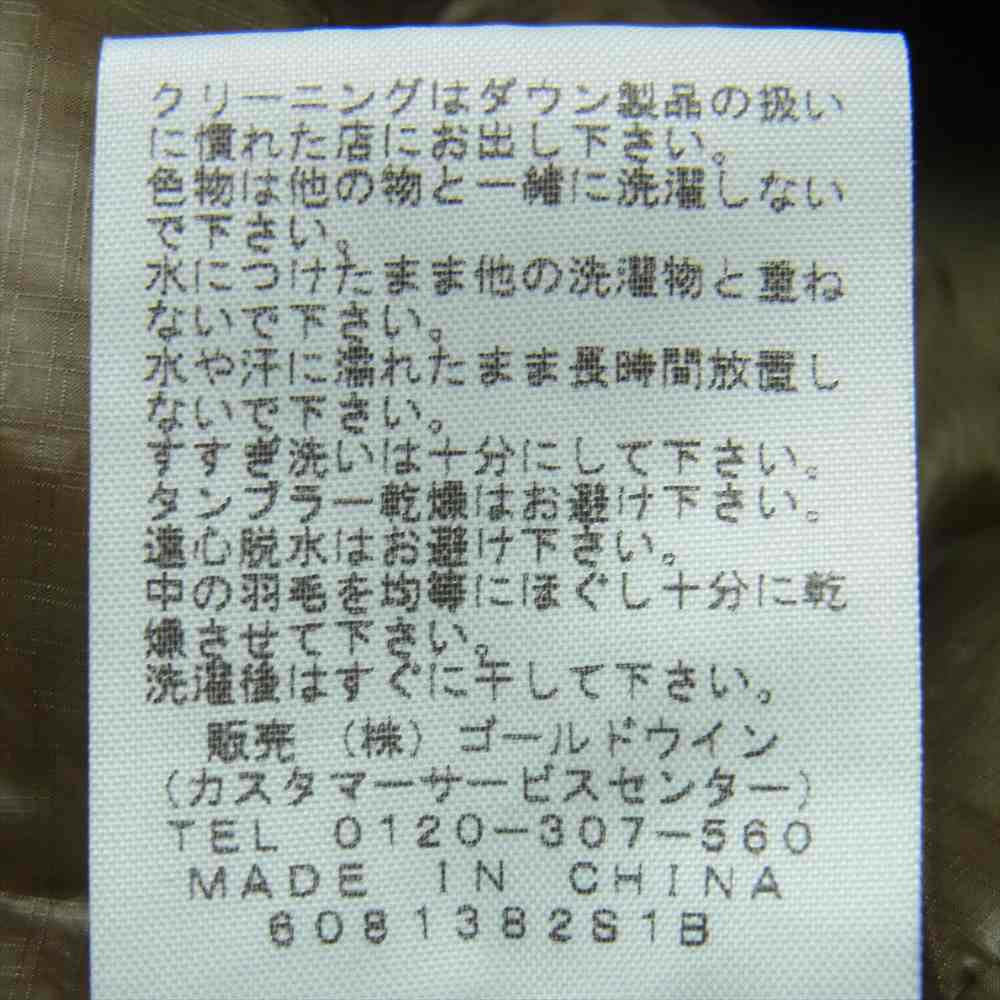 クリーニングはダウン製品の扱い
に慣れた店にお出し下さい。
色物は他の物と一緒に洗濯しない
で下さい。
水につけたまま他の洗濯物と重ね
ないで下さい。
水や汗に濡れたまま長時間放置し
ないで下さい。
すすぎ洗いは十分にして下さい。
タンブラー乾燥はお避け下さい。
遠心脱水はお避け下さい。
中の羽毛を均等にほぐし十分に乾
燥させて下さい。
洗濯後はすぐに干して下さい。
販売 (株) ゴールドウイン
(カスタマーサービスセンター)
TEL 0120-307-560
MADE IN CHINA
6081382S1B